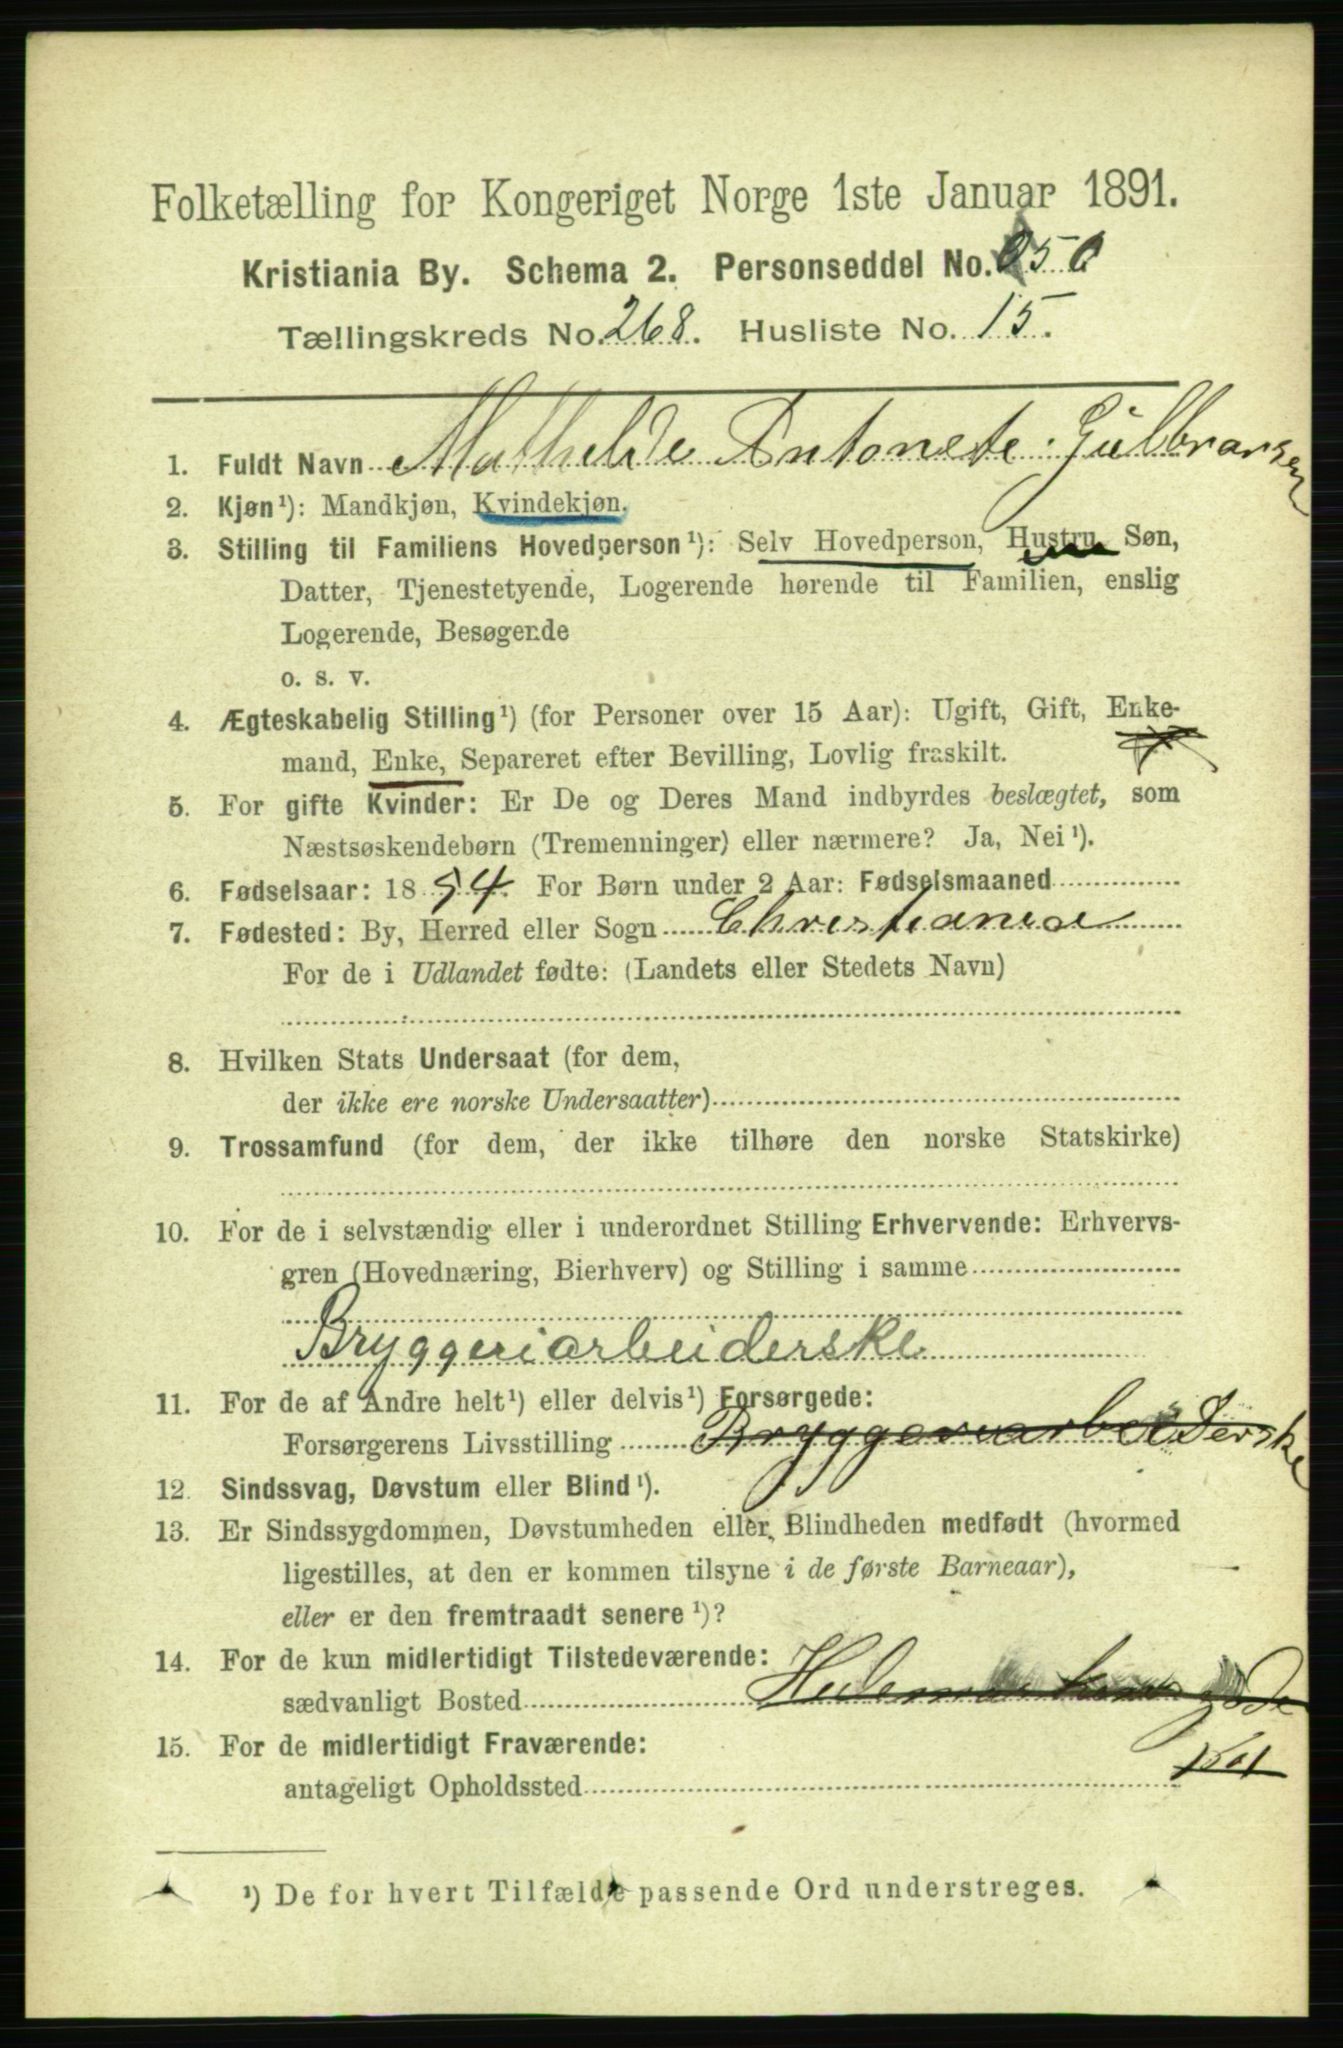 Folketælling for Kongeriget Norge 1ste Januar 1891.
Kristiania By. Schema 2. Personseddel No. 050
Tællingskreds No. 268. Husliste No. 15.
1. Fuldt Navn Mathilde Antonete Gulbransen
2. Kjøn¹): Mandkjøn, Kvindekjøn.
3. Stilling til Familiens Hovedperson¹): Selv Hovedperson, Hustru, Søn,
Datter, Tjenestetyende, Logerende hørende til Familien, enslig
Logerende, Besøgende
o. s. v.
4. Ægteskabelig Stilling¹) (for Personer over 15 Aar): Ugift, Gift, Enke-
mand, Enke, Separeret efter Bevilling, Lovlig fraskilt.
5. For gifte Kvinder: Er De og Deres Mand indbyrdes beslægtet, som
Næstsøskendebørn (Tremenninger) eller nærmere? Ja, Nei¹).
6. Fødselsaar: 1854. For Børn under 2 Aar: Fødselsmaaned
7. Fødested: By, Herred eller Sogn Christiania
For de i Udlandet fødte: (Landets eller Stedets Navn)
8. Hvilken Stats Undersaat (for dem,
der ikke ere norske Undersaatter)
9. Trossamfund (for dem, der ikke tilhøre den norske Statskirke)
10. For de i selvstændig eller i underordnet Stilling Erhvervende: Erhvervs-
gren (Hovednæring, Bierhverv) og Stilling i samme
Bryggeriarbeiderske
11. For de af Andre helt¹) eller delvis¹) Forsørgede:
Forsørgerens Livsstilling Bryggeriarbeiderske
12. Sindssvag, Døvstum eller Blind¹).
13. Er Sindssygdommen, Døvstumheden eller Blindheden medfødt (hvormed
ligestilles, at den er kommen tilsyne i de første Barneaar),
eller er den fremtraadt senere¹)?
14. For de kun midlertidigt Tilstedeværende:
sædvanligt Bosted
15. For de midlertidigt Fraværende:
antageligt Opholdssted
¹) De for hvert Tilfælde passende Ord understreges.